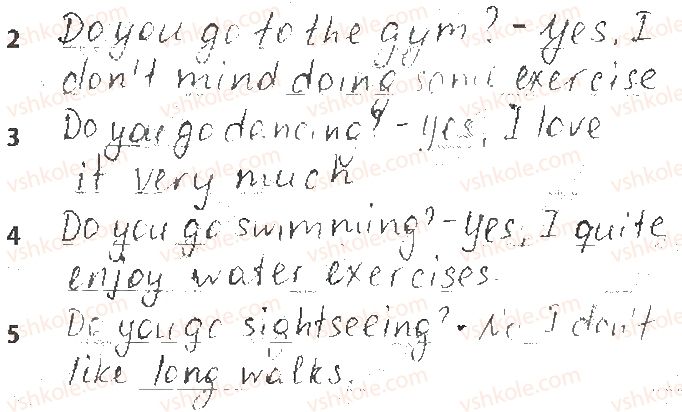 2 Do you go to the gym? - Yes, I
don't mind doing some exercise
3 Do you go dancing? - Yes, I love
it very much
4 Do you go swimming? - Yes, I quite
enjoy water exercises.
5 Do you go sightseeing? - No I don't
like long walks.